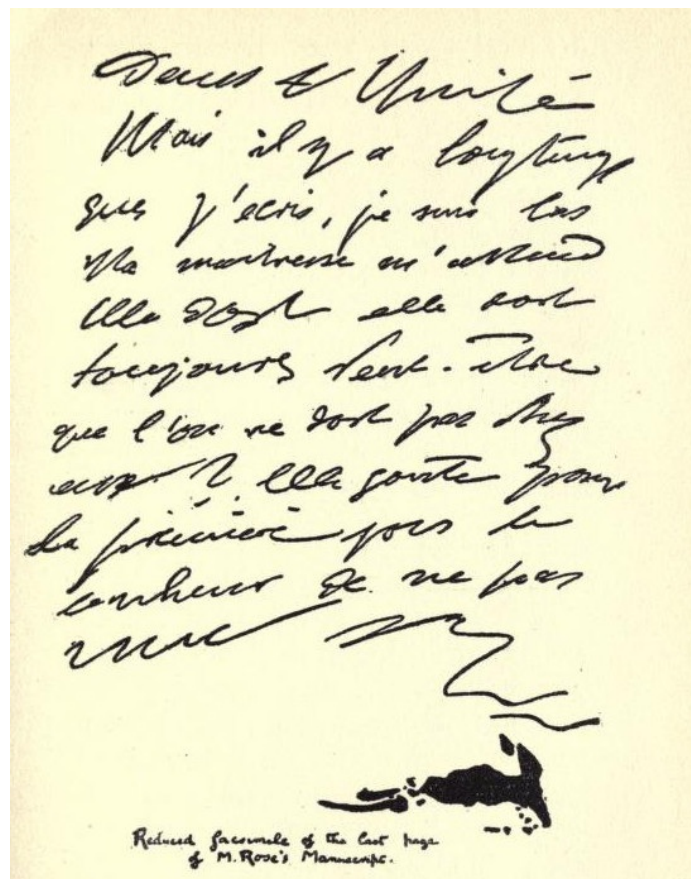 Unité
Mais il y a longtemps
que j'ecris, je suis las
Ma maitresse m'attend
Elle dort elle dort
toujours Peut-etre
que l'on ne dort pas
Elle goute pour
la première fois le
bonheur de ne pas
Reduced facsimile of the last page
of M. Rose's Manuscript.